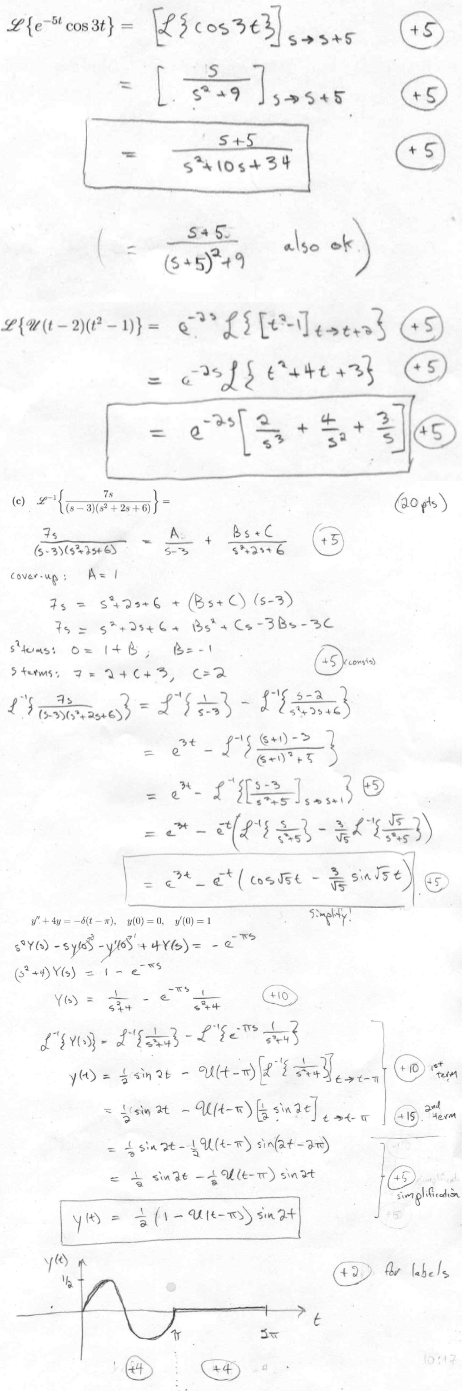 ℒ{e^{-5t} cos 3t} = [ℒ{cos 3t}]_{s→s+5} (+5)
= [s/(s²+9)]_{s→s+5} (+5)
= (s+5)/(s²+10s+34) (+5)
( = (s+5)/((s+5)²+9) also ok )
ℒ{𝒰(t−2)(t²−1)} = e^{-2s} ℒ{[t²-1]_{t→t+2}} (+5)
= e^{-2s} ℒ{t²+4t+3} (+5)
= e^{-2s}[2/s³ + 4/s² + 3/s] (+5)
(c) ℒ^{-1}{7s/((s−3)(s²+2s+6))} = (20 pts)
7s/((s-3)(s²+2s+6)) = A/(s-3) + (Bs+C)/(s²+2s+6) (+5)
cover-up: A = 1
7s = s²+2s+6 + (Bs+C)(s-3)
7s = s²+2s+6 + Bs² + Cs - 3Bs - 3C
s² terms: 0 = 1+B, B = -1
s terms: 7 = 2+C+3, C=2 (+5) (consts)
ℒ^{-1}{7s/((s-3)(s²+2s+6))} = ℒ^{-1}{1/(s-3)} - ℒ^{-1}{(s-2)/(s²+2s+6)}
= e^{3t} - ℒ^{-1}{((s+1)-3)/((s+1)²+5)}
= e^{3t} - ℒ^{-1}{[(s-3)/(s²+5)]_{s→s+1}} (+5)
= e^{3t} - e^{-t}(ℒ^{-1}{s/(s²+5)} - 3/√5 ℒ^{-1}{√5/(s²+5)})
= e^{3t} - e^{-t}(cos√5t - 3/√5 sin√5t) (+5)
Simplify!
y″ + 4y = −δ(t − π), y(0) = 0, y′(0) = 1
s²Y(s) - sy(0)^0 - y'(0)^1 + 4Y(s) = -e^{-πs}
(s²+4)Y(s) = 1 - e^{-πs}
Y(s) = 1/(s²+4) - e^{-πs} 1/(s²+4) (+10)
ℒ^{-1}{Y(s)} = ℒ^{-1}{1/(s²+4)} - ℒ^{-1}{e^{-πs} 1/(s²+4)}
y(t) = ½ sin 2t - 𝒰(t-π)[ℒ^{-1}{1/(s²+4)}]_{t→t-π} (+10) 1st term
= ½ sin 2t - 𝒰(t-π)[½ sin 2t]_{t→t-π} (+15) 2nd term
= ½ sin 2t - ½ 𝒰(t-π) sin(2t-2π)
= ½ sin 2t - ½ 𝒰(t-π) sin 2t (+5) simplification
y(t) = ½ (1 - 𝒰(t-π)) sin 2t
y(t)
1/2
(+2) for labels
t
π
2π
(+4) (+4)